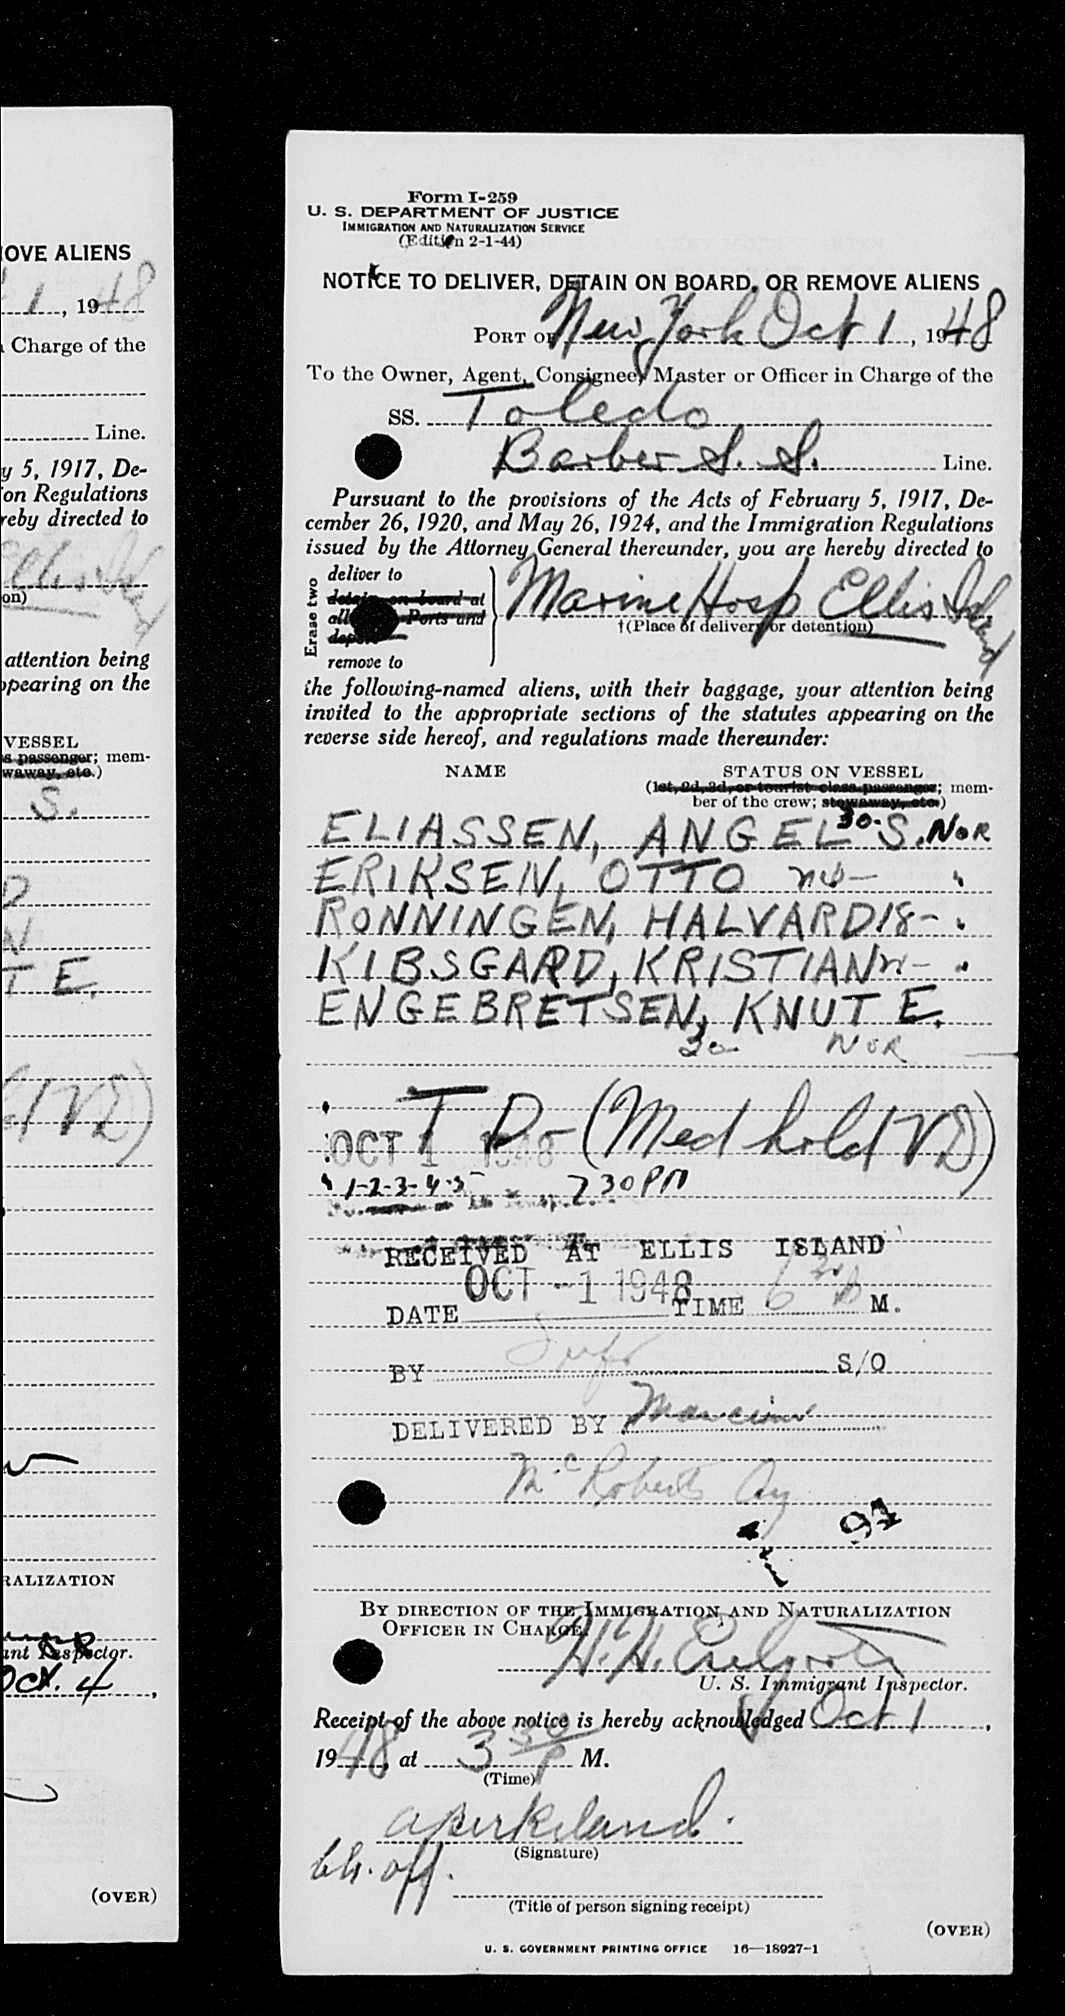 OVE ALIENS
1, 1948
Charge of the
Line.
y 5, 1917, De-
on Regulations
reby directed to
Ellis Island
on)
attention being
ppearing on the
VESSEL
s passenger; mem-
waway, etc.)
S.
D
N
T E.
d VD)
RALIZATION
ant Inspector.
Oct. 4,
(OVER)
Form I-259
U. S. DEPARTMENT OF JUSTICE
IMMIGRATION AND NATURALIZATION SERVICE
(Edition 2-1-44)
NOTICE TO DELIVER, DETAIN ON BOARD, OR REMOVE ALIENS
PORT OF New York Oct 1, 1948
To the Owner, Agent, Consignee, Master or Officer in Charge of the
SS. Toledo
Barber S. S. Line.
Pursuant to the provisions of the Acts of February 5, 1917, De-
cember 26, 1920, and May 26, 1924, and the Immigration Regulations
issued by the Attorney General thereunder, you are hereby directed to
Erase two
deliver to
detain on board at
all Ports and
deport
remove to
Marine Hosp Ellis Island
†(Place of delivery or detention)
the following-named aliens, with their baggage, your attention being
invited to the appropriate sections of the statutes appearing on the
reverse side hereof, and regulations made thereunder:
NAME STATUS ON VESSEL
(1st, 2d, 3d, or tourist class passenger; mem-
ber of the crew; stowaway, etc.)
ELIASSEN, ANGEL S. 30- NOR
ERIKSEN, OTTO "
RONNINGEN, HALVARD 18- "
KIBSGARD, KRISTIAN "
ENGEBRETSEN, KNUT E.
30 NOR
T D- (Med hold VD)
OCT 1 1948
1-2-3-4-5 7 30 PM
RECEIVED AT ELLIS ISLAND
DATE OCT -1 1948 TIME 6 30 P M.
BY S/O
DELIVERED BY
McRoberts Ag
97
BY DIRECTION OF THE IMMIGRATION AND NATURALIZATION
OFFICER IN CHARGE.
H. H.
U. S. Immigrant Inspector.
Receipt of the above notice is hereby acknowledged Oct 1,
1948, at 3 30 P M.
(Time)
A Birkeland.
(Signature)
Ch. off.
(Title of person signing receipt)
(OVER)
U. S. GOVERNMENT PRINTING OFFICE 16—18927-1